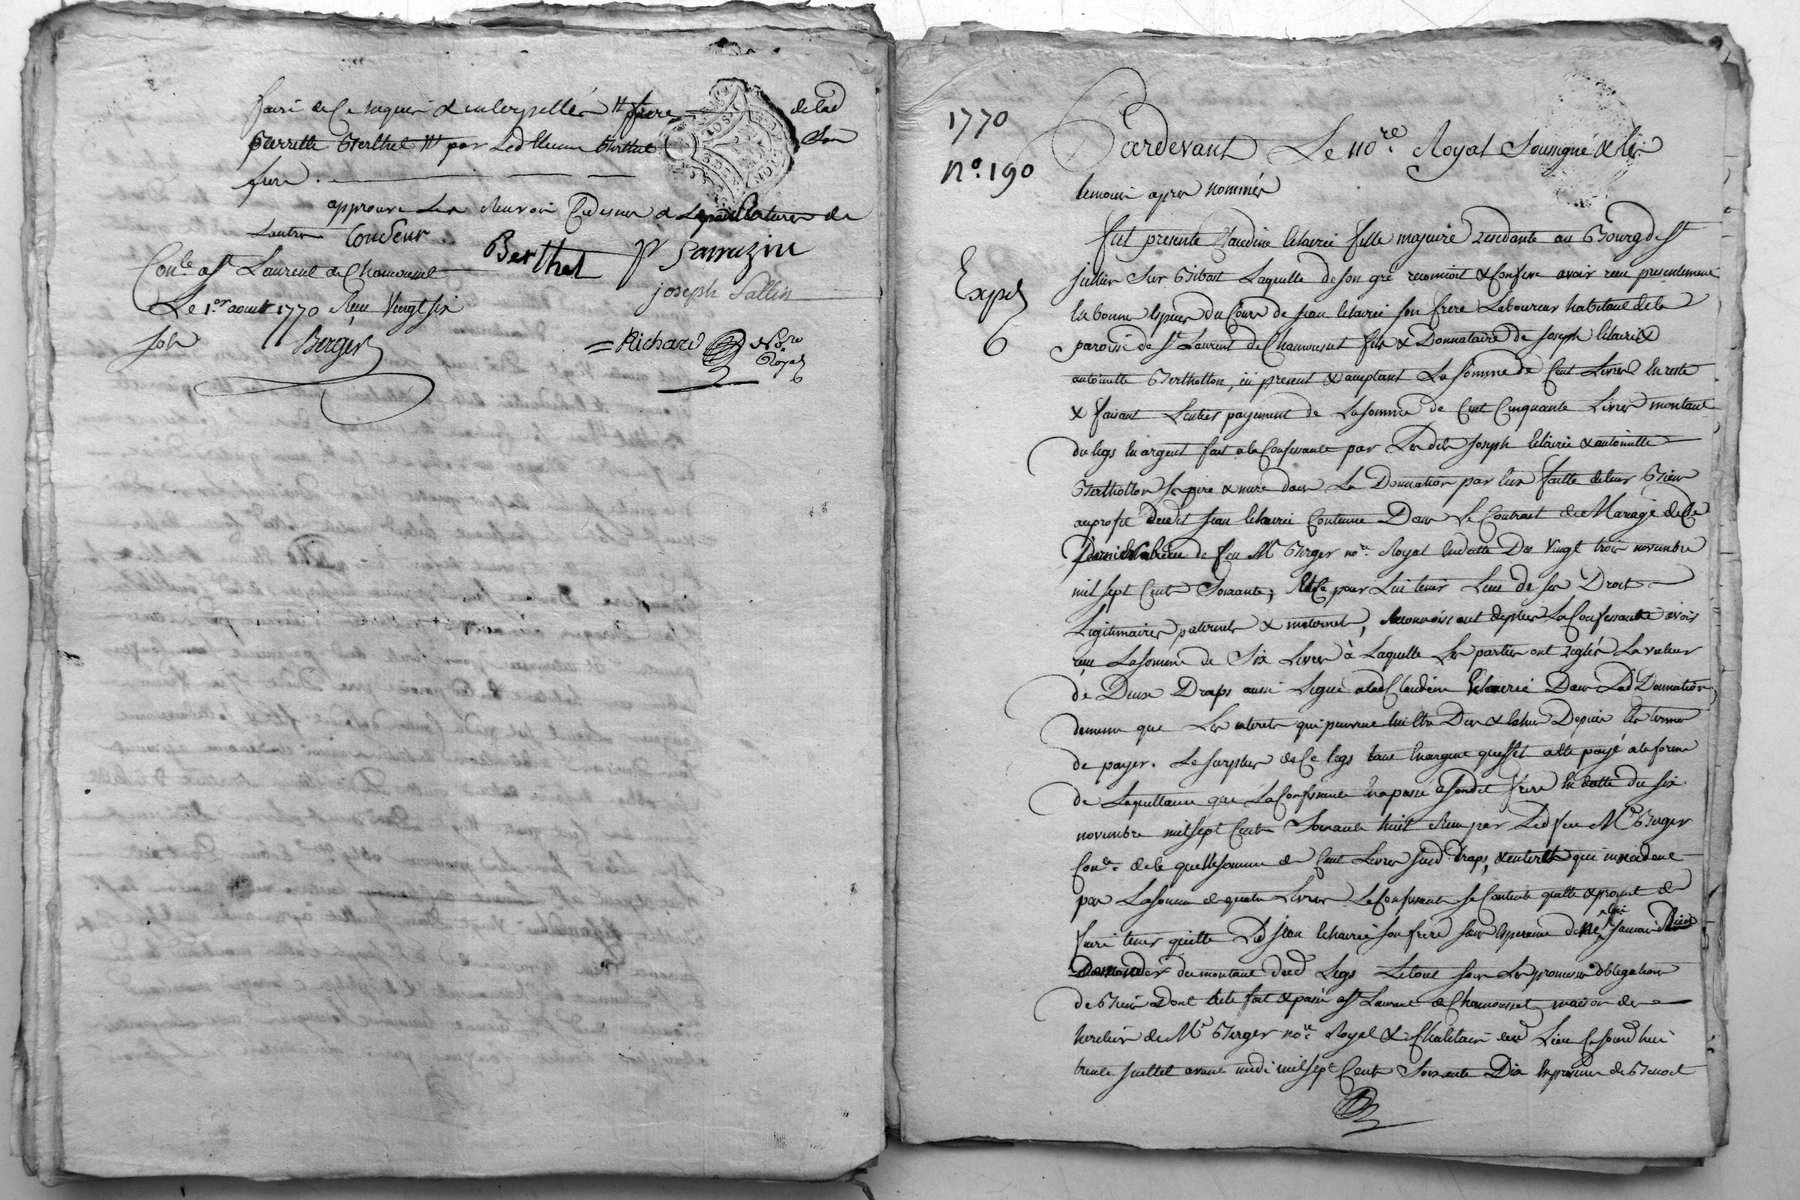 faire de ce requis & interpellés # frere de lad
Pierrette Berthet # par led Berthet son
frere.
approuvé les renvois cy dessus &
lautre Coudeur
Berthet P Sarrazin
Conlé a St Laurent de Chamousset
joseph Sallin
Le 1er aoust 1770 Reçu Vingt six
sols Berger
Richard Nore Royal
1770
No. 190
Pardevant Le nore Royal Soussigné & les
temoins apres nommés
Exped
fut presente Claudine fille majeure residante au Bourg de St
jullien Sur Bibost Laquelle de son gré reconnoit & confesse avoir reçu presentement
en bonne especes du Cours de jean son frere Laboureur habitant de la
paroisse de St Laurent de Chamousset fils & Donnataire de joseph &
antoinette Bertholton, ici present & acceptant La Somme de Cent Livres en reste
& faisant L'entier payement de La somme de Cent Cinquante Livres montant
du legs en argent fait a la Confessante par Lesdits joseph & antoinette
Bertholton ses pere & mere dans La Donnation par eux faitte de leurs Biens
au profit dudit jean Contenue Dans Le Contract de Mariage de ce
Dernier Reçu de feu Me Berger nore Royal en datte Du vingt trois novembre
mil sept Cents Soixante; et ce pour Lui tenir Lieu de ses Droits
Legitimaires paternels & maternels, Reconnoissant de plus La Confessante avoir
reçu La somme de Six Livres à Laquelle Les parties ont reglés La valeur
de Deux Draps aussi Legué a lad Claudine Dans Lad Donnation
de meme que Les interets qui peuvent lui etre Dus & echus Depuis Les termes
de payer. Le surplus de Ce legs tant en argent qu'effet a été payé a la forme
de La quittance que La Confessante en a passé a sondit frere en datte du six
novembre mil sept Cents Soixante huit Reçu par Led feu Me Berger
Conlé. de la quelle somme de Cent Livres susd draps, & interets qui
par La somme de quatre Livres La Confessante se Contente quitte & promet de
faire tenir quitte Led jean son frere sans esperance de ne lui jamais Rien
Demander du montant dud Legs Le tout sous Les promesses obligations
de Biens & dont acte fait & passé a St Laurent de Chamousset maison des
heritiers de Me Berger nore Royal & Chatelain dud Lieu Cejourd'hui
trente juillet avant midi mil sept Cents Soixante Dix en presence de Benoit